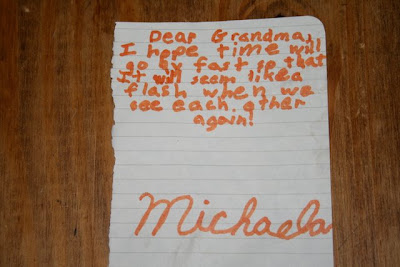 Dear Grandma,
I hope time will
go by fast so that
It will seem like a
flash when we
see each other
again!
Michaela